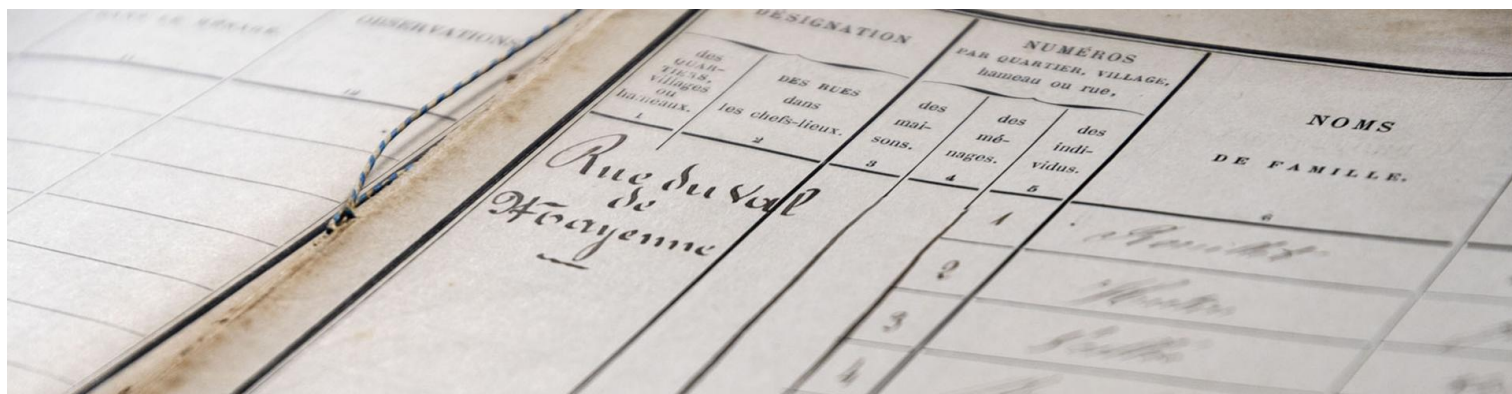 OBSERVATIONS
DÉSIGNATION
des
QUAR-
TIERS,
villages
ou
hameaux.
1
DES RUES
dans
les chefs-lieux.
2
NUMÉROS
PAR QUARTIER, VILLAGE,
hameau ou rue,
des
mai-
sons.
3
des
mé-
nages.
4
des
indi-
vidus.
5
NOMS
DE FAMILLE.
6
Rue du Val
de
Mayenne
1
2
3
4